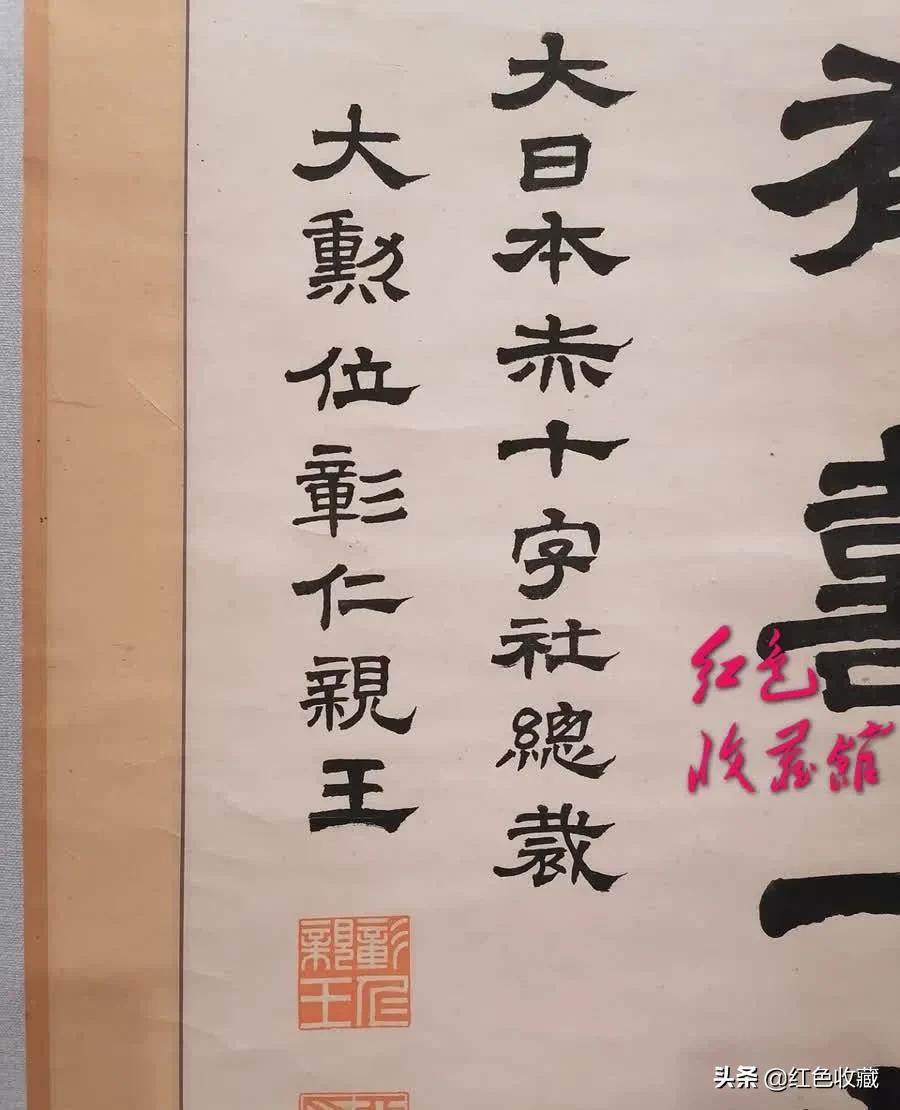 大日本赤十字社總裁
大勲位彰仁親王
彰仁
親王
红色
收藏馆
头条 @红色收藏